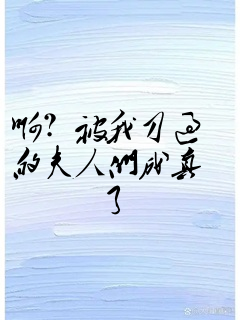 啊？被我刀过
的夫人们成真
了